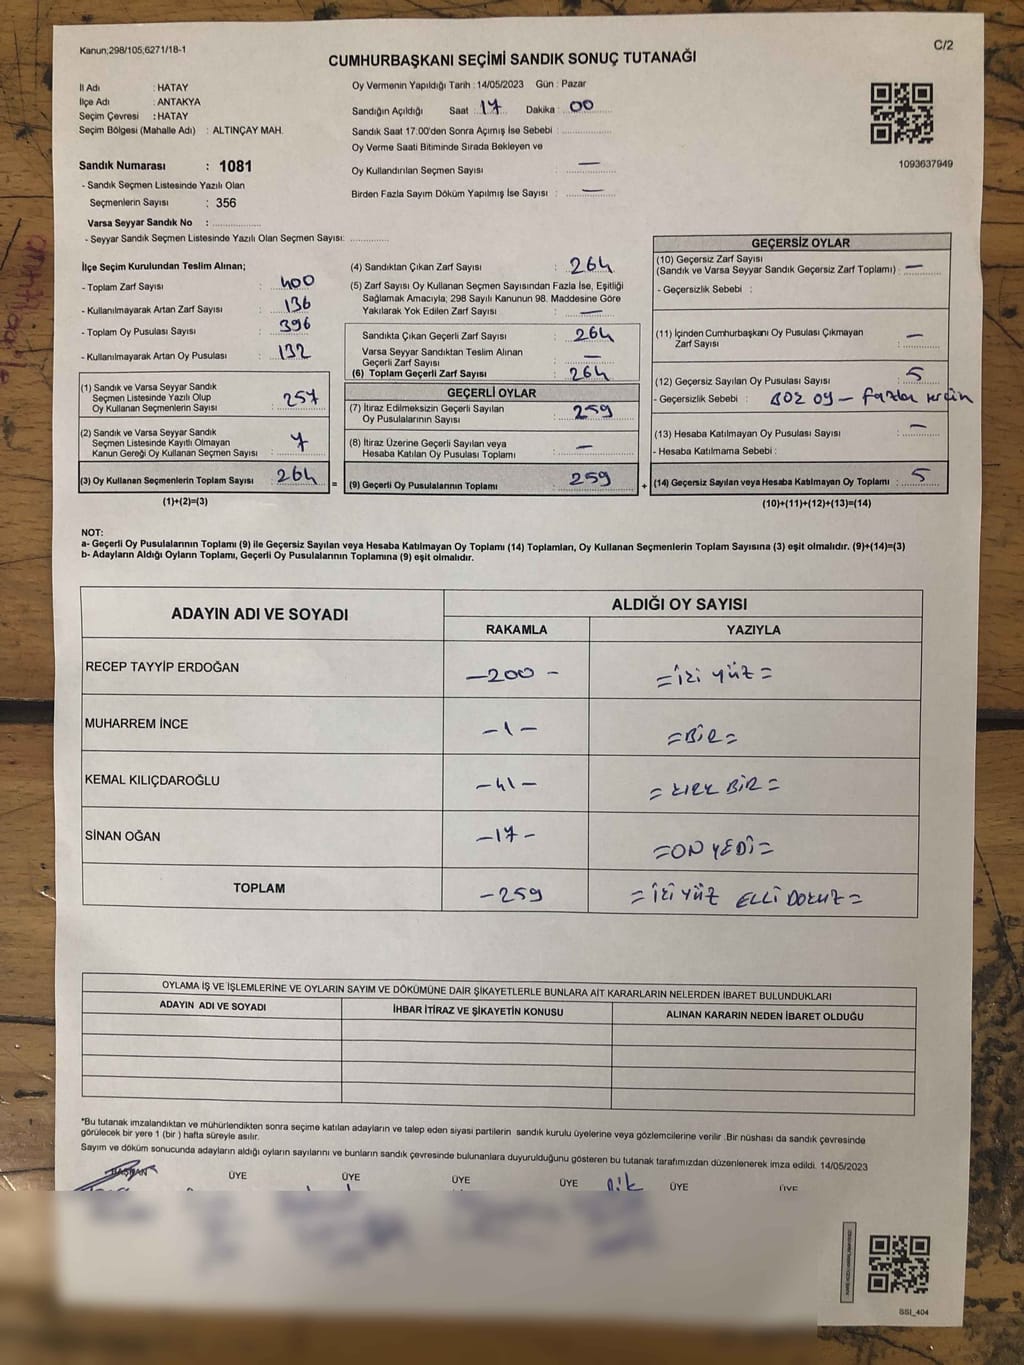 Kanun;298/105,6271/18-1
C/2
CUMHURBAŞKANI SEÇİMİ SANDIK SONUÇ TUTANAĞI
İl Adı : HATAY
İlçe Adı : ANTAKYA
Seçim Çevresi : HATAY
Seçim Bölgesi (Mahalle Adı) : ALTINÇAY MAH.
Oy Vermenin Yapıldığı Tarih : 14/05/2023 Gün : Pazar
Sandığın Açıldığı Saat 17 Dakika : 00
Sandık Saat 17:00'den Sonra Açımış İse Sebebi :
Oy Verme Saati Bitiminde Sırada Bekleyen ve
Oy Kullandırılan Seçmen Sayısı : —
Birden Fazla Sayım Döküm Yapılmış İse Sayısı : —
1093637949
Sandık Numarası : 1081
- Sandık Seçmen Listesinde Yazılı Olan
Seçmenlerin Sayısı : 356
Varsa Seyyar Sandık No :
- Seyyar Sandık Seçmen Listesinde Yazılı Olan Seçmen Sayısı:
İlçe Seçim Kurulundan Teslim Alınan;
- Toplam Zarf Sayısı : 400
- Kullanılmayarak Artan Zarf Sayısı : 136
- Toplam Oy Pusulası Sayısı : 396
- Kullanılmayarak Artan Oy Pusulası : 132
(1) Sandık ve Varsa Seyyar Sandık
Seçmen Listesinde Yazılı Olup
Oy Kullanan Seçmenlerin Sayısı : 257
(2) Sandık ve Varsa Seyyar Sandık
Seçmen Listesinde Kayıtlı Olmayan
Kanun Gereği Oy Kullanan Seçmen Sayısı : 7
(3) Oy Kullanan Seçmenlerin Toplam Sayısı : 264
(1)+(2)=(3)
(4) Sandıktan Çıkan Zarf Sayısı : 264
(5) Zarf Sayısı Oy Kullanan Seçmen Sayısından Fazla İse, Eşitliği
Sağlamak Amacıyla; 298 Sayılı Kanunun 98. Maddesine Göre
Yakılarak Yok Edilen Zarf Sayısı : —
Sandıkta Çıkan Geçerli Zarf Sayısı : 264
Varsa Seyyar Sandıktan Teslim Alınan
Geçerli Zarf Sayısı : —
(6) Toplam Geçerli Zarf Sayısı : 264
GEÇERLİ OYLAR
(7) İtiraz Edilmeksizin Geçerli Sayılan
Oy Pusulalarının Sayısı : 259
(8) İtiraz Üzerine Geçerli Sayılan veya
Hesaba Katılan Oy Pusulası Toplamı : —
= (9) Geçerli Oy Pusulalarının Toplamı : 259
GEÇERSİZ OYLAR
(10) Geçersiz Zarf Sayısı
(Sandık ve Varsa Seyyar Sandık Geçersiz Zarf Toplamı) : —
- Geçersizlik Sebebi :
(11) İçinden Cumhurbaşkanı Oy Pusulası Çıkmayan
Zarf Sayısı : —
(12) Geçersiz Sayılan Oy Pusulası Sayısı : 5
- Geçersizlik Sebebi : BOŞ OY —
(13) Hesaba Katılmayan Oy Pusulası Sayısı : —
- Hesaba Katılmama Sebebi :
+ (14) Geçersiz Sayılan veya Hesaba Katılmayan Oy Toplamı : 5
(10)+(11)+(12)+(13)=(14)
NOT:
a- Geçerli Oy Pusulalarının Toplamı (9) ile Geçersiz Sayılan veya Hesaba Katılmayan Oy Toplamı (14) Toplamları, Oy Kullanan Seçmenlerin Toplam Sayısına (3) eşit olmalıdır. (9)+(14)=(3)
b- Adayların Aldığı Oyların Toplamı, Geçerli Oy Pusulalarının Toplamına (9) eşit olmalıdır.
ADAYIN ADI VE SOYADI
ALDIĞI OY SAYISI
RAKAMLA YAZIYLA
RECEP TAYYİP ERDOĞAN —200 — = İKİ YÜZ =
MUHARREM İNCE —1— =BİR=
KEMAL KILIÇDAROĞLU —41— = KIRK BİR =
SİNAN OĞAN —17— =ON YEDİ=
TOPLAM —259 = İKİ YÜZ ELLİ DOKUZ =
OYLAMA İŞ VE İŞLEMLERİNE VE OYLARIN SAYIM VE DÖKÜMÜNE DAİR ŞİKAYETLERLE BUNLARA AİT KARARLARIN NELERDEN İBARET BULUNDUKLARI
ADAYIN ADI VE SOYADI İHBAR İTİRAZ VE ŞİKAYETİN KONUSU ALINAN KARARIN NEDEN İBARET OLDUĞU
*Bu tutanak imzalandıktan ve mühürlendikten sonra seçime katılan adayların ve talep eden siyasi partilerin sandık kurulu üyelerine veya gözlemcilerine verilir .Bir nüshası da sandık çevresinde
görülecek bir yere 1 (bir ) hafta süreyle asılır.
Sayım ve döküm sonucunda adayların aldığı oyların sayılarını ve bunların sandık çevresinde bulunanlara duyurulduğunu gösteren bu tutanak tarafımızdan düzenlenerek imza edildi. 14/05/2023
BAŞKAN ÜYE ÜYE ÜYE ÜYE ÜYE ÜYE
SSI_404